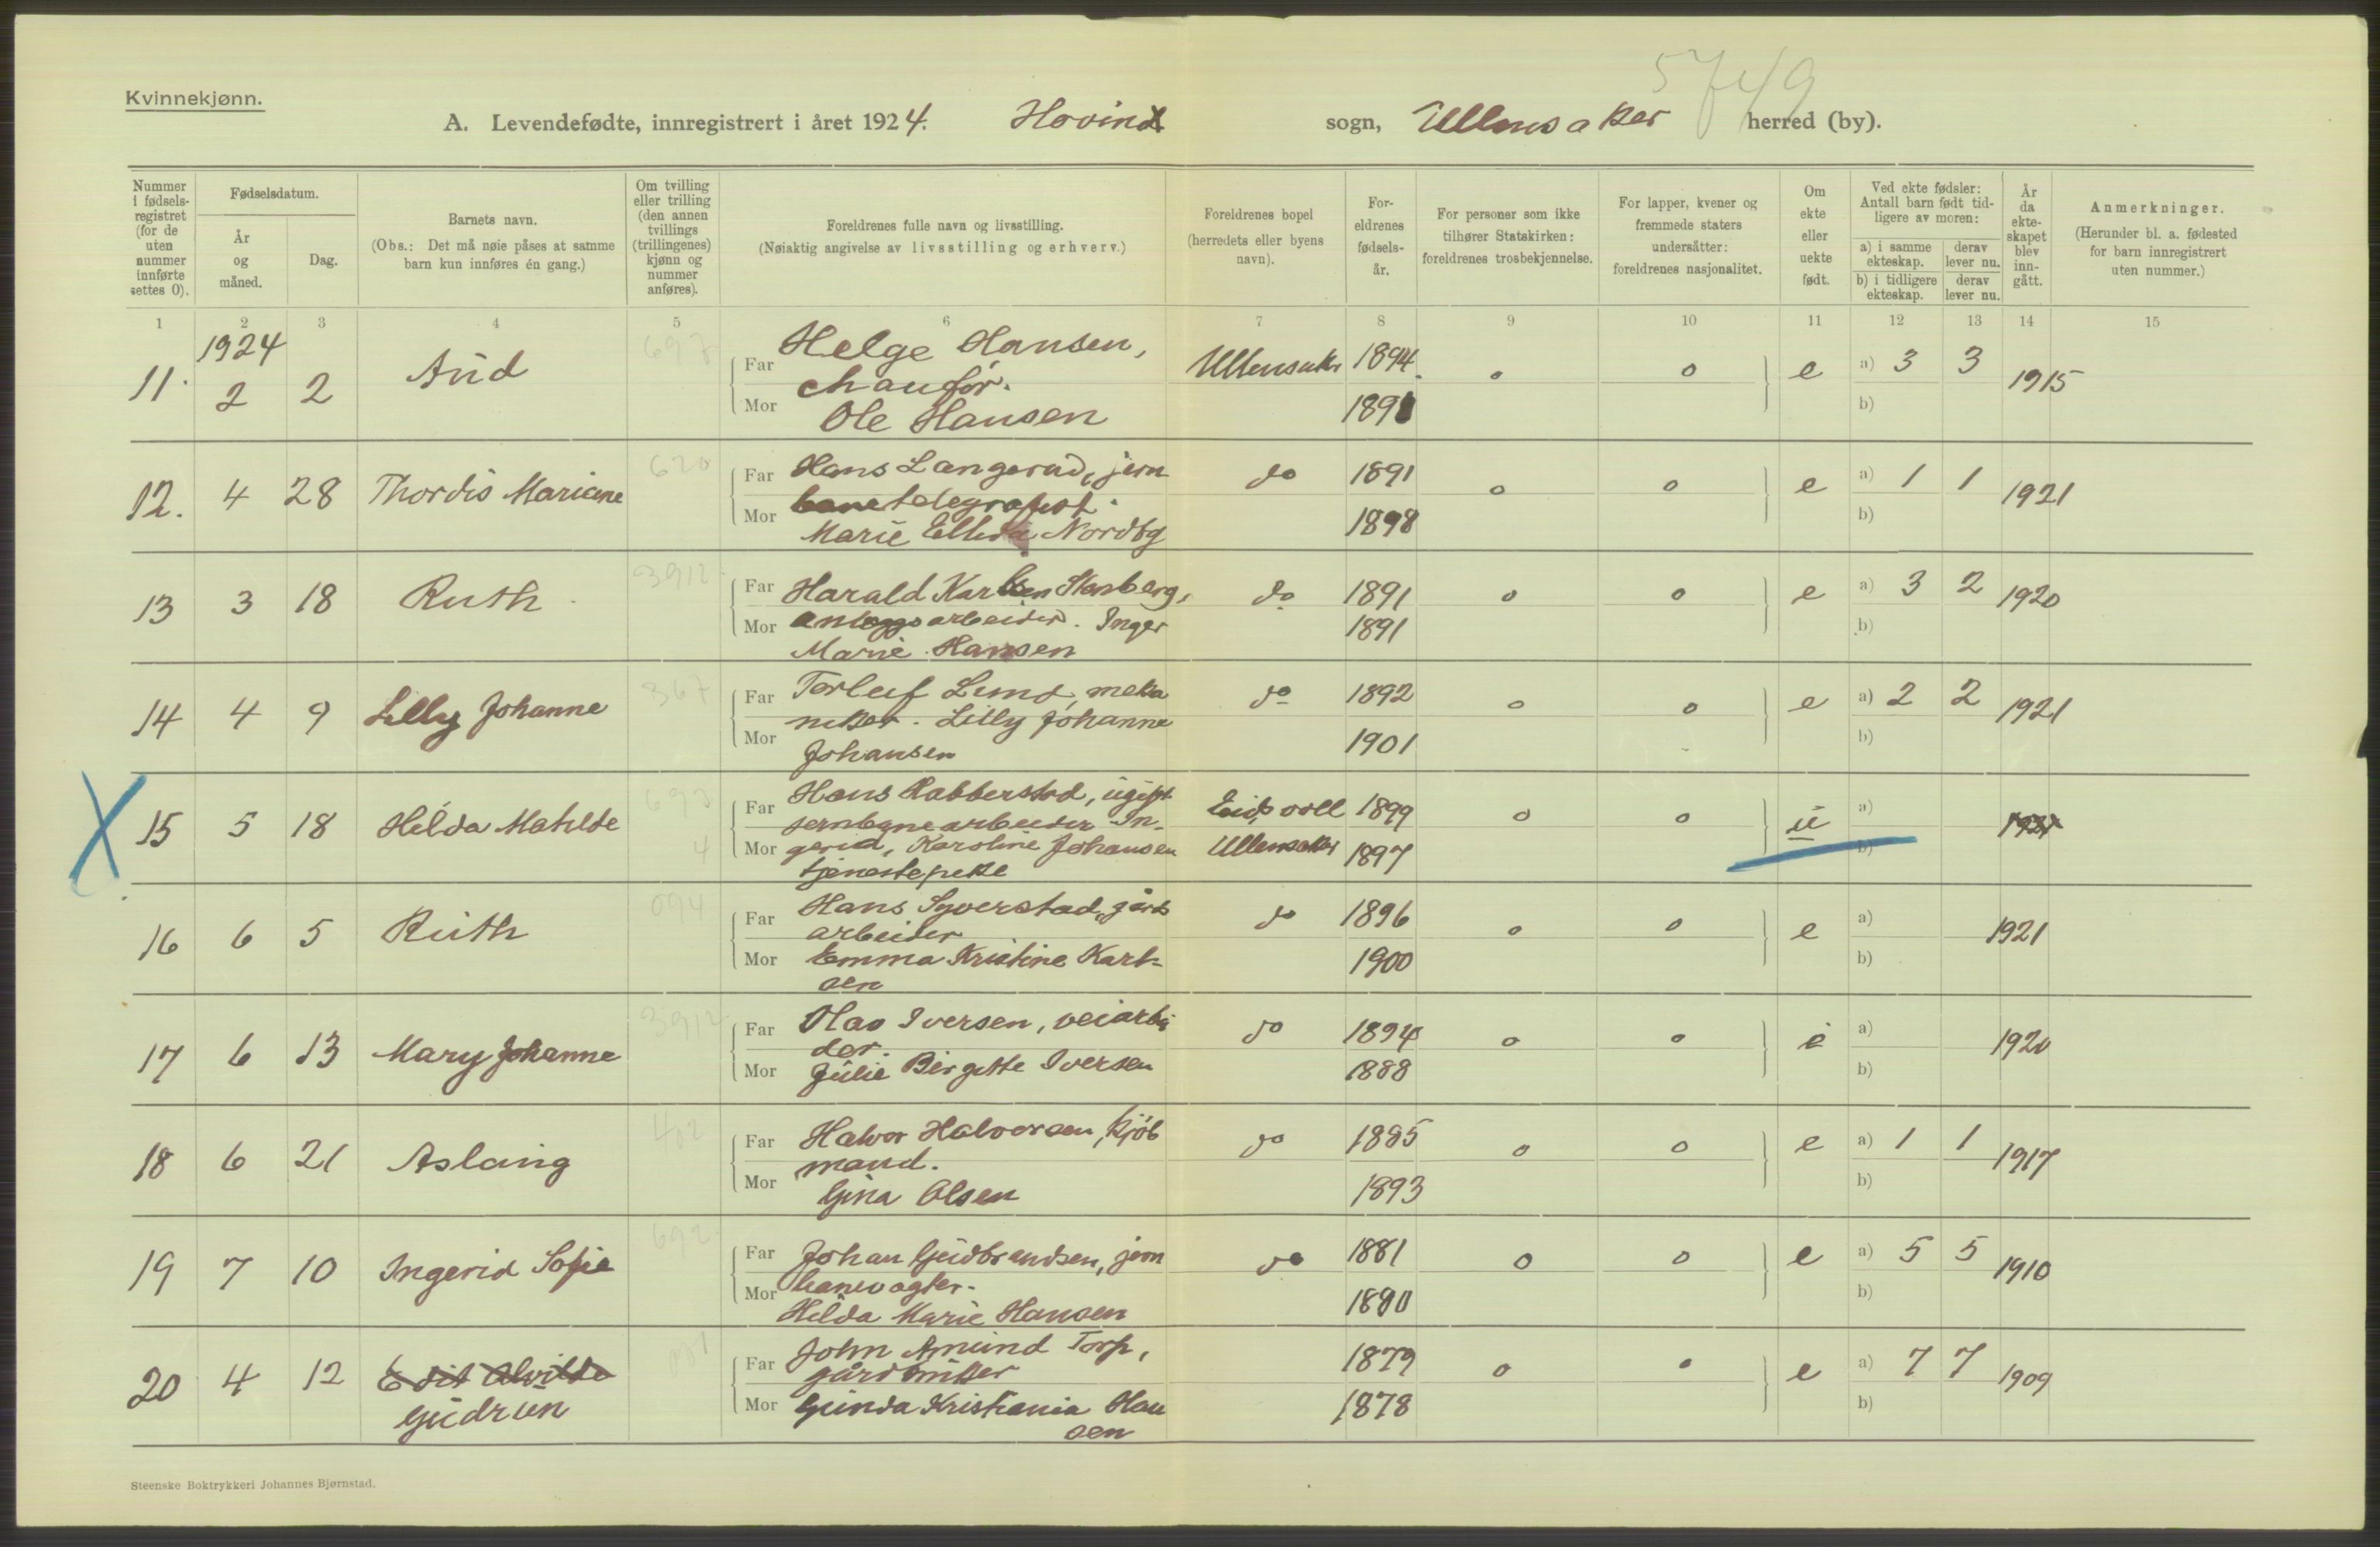 Kvinnekjønn.
5749
A. Levendefødte, innregistrert i året 1924. Hovind sogn, Ullensaker herred (by).
Nummer i fødsels-registret (for de uten nummer innførte settes 0).
Fødselsdatum.
År og måned.
Dag.
Barnets navn.
(Obs.: Det må nøie påses at samme barn kun innføres én gang.)
Om tvilling eller trilling (den annen tvillings (trillingenes) kjønn og nummer anføres).
Foreldrenes fulle navn og livsstilling.
(Nøiaktig angivelse av livsstilling og erhverv.)
Foreldrenes bopel (herredets eller byens navn).
For-eldrenes fødsels-år.
For personer som ikke tilhører Statskirken: foreldrenes trosbekjennelse.
For lapper, kvener og fremmede staters undersåtter: foreldrenes nasjonalitet.
Om ekte eller uekte født.
Ved ekte fødsler: Antall barn født tid-ligere av moren:
a) i samme ekteskap. derav lever nu.
b) i tidligere ekteskap. derav lever nu.
År da ekte-skapet blev inn-gått.
Anmerkninger.
(Herunder bl. a. fødested for barn innregistrert uten nummer.)
1 2 3 4 5 6 7 8 9 10 11 12 13 14 15
1924
11. 2 2 Aud 697 Far Helge Hansen, Ullensaker 1894 0 0 e a) 3 3 1915
chauffør.
Mor Ole Hansen 1891 b)
12. 4 28 Thordis Mariane 620 Far Hans Langerud, jern do 1891 0 0 e a) 1 1 1921
banetelegrafist.
Mor Marie Ellida Nordbg 1898 b)
13 3 18 Ruth 3912 Far Harald Karlsen Stenberg, do 1891 0 0 e a) 3 2 1920
Mor anleggsarbeider. Inger 1891 b)
Marie Hansen
14 4 9 Lilly Johanne 367 Far Torleif Lund, meka do 1892 0 0 e a) 2 2 1921
niker. Lilly Johanne
Mor Johansen 1901 b)
15 5 18 Hilda Matilde 692 4 Far Hans Rabberstad, ugift Eidsvoll 1899 0 0 u a) 1921
jernbanearbeider In-
Mor gerid, Karoline Johansen Ullensaker 1897 b)
tjenestepike
16 6 5 Ruth 094 Far Hans Syverstad, gårds do 1896 0 0 e a) 1921
arbeider
Mor Emma Kristine Karl- 1900 b)
sen
17 6 13 Mary Johanne 3912 Far Olav Iversen, veiarbei do 1894 0 0 e a) 1920
der.
Mor Julie Birgitte Iversen 1888 b)
18 6 21 Aslaug 402 Far Halvor Halvorsen, kjøb do 1885 0 0 e a) 1 1 1917
mand.
Mor Gina Olsen 1893 b)
19 7 10 Ingerid Sofie 692 Far Johan Gudbrandsen, jern do 1881 0 0 e a) 5 5 1910
Mor banevogter. 1890 b)
Hilda Marie Hansen
20 4 12 Edit Alvilde 001 Far John Amund Torp, 1879 0 0 e a) 7 7 1909
Gudrun gårdbruker
Mor Gunda Kristiania Han 1878 b)
sen
Steenske Boktrykkeri Johannes Bjørnstad.